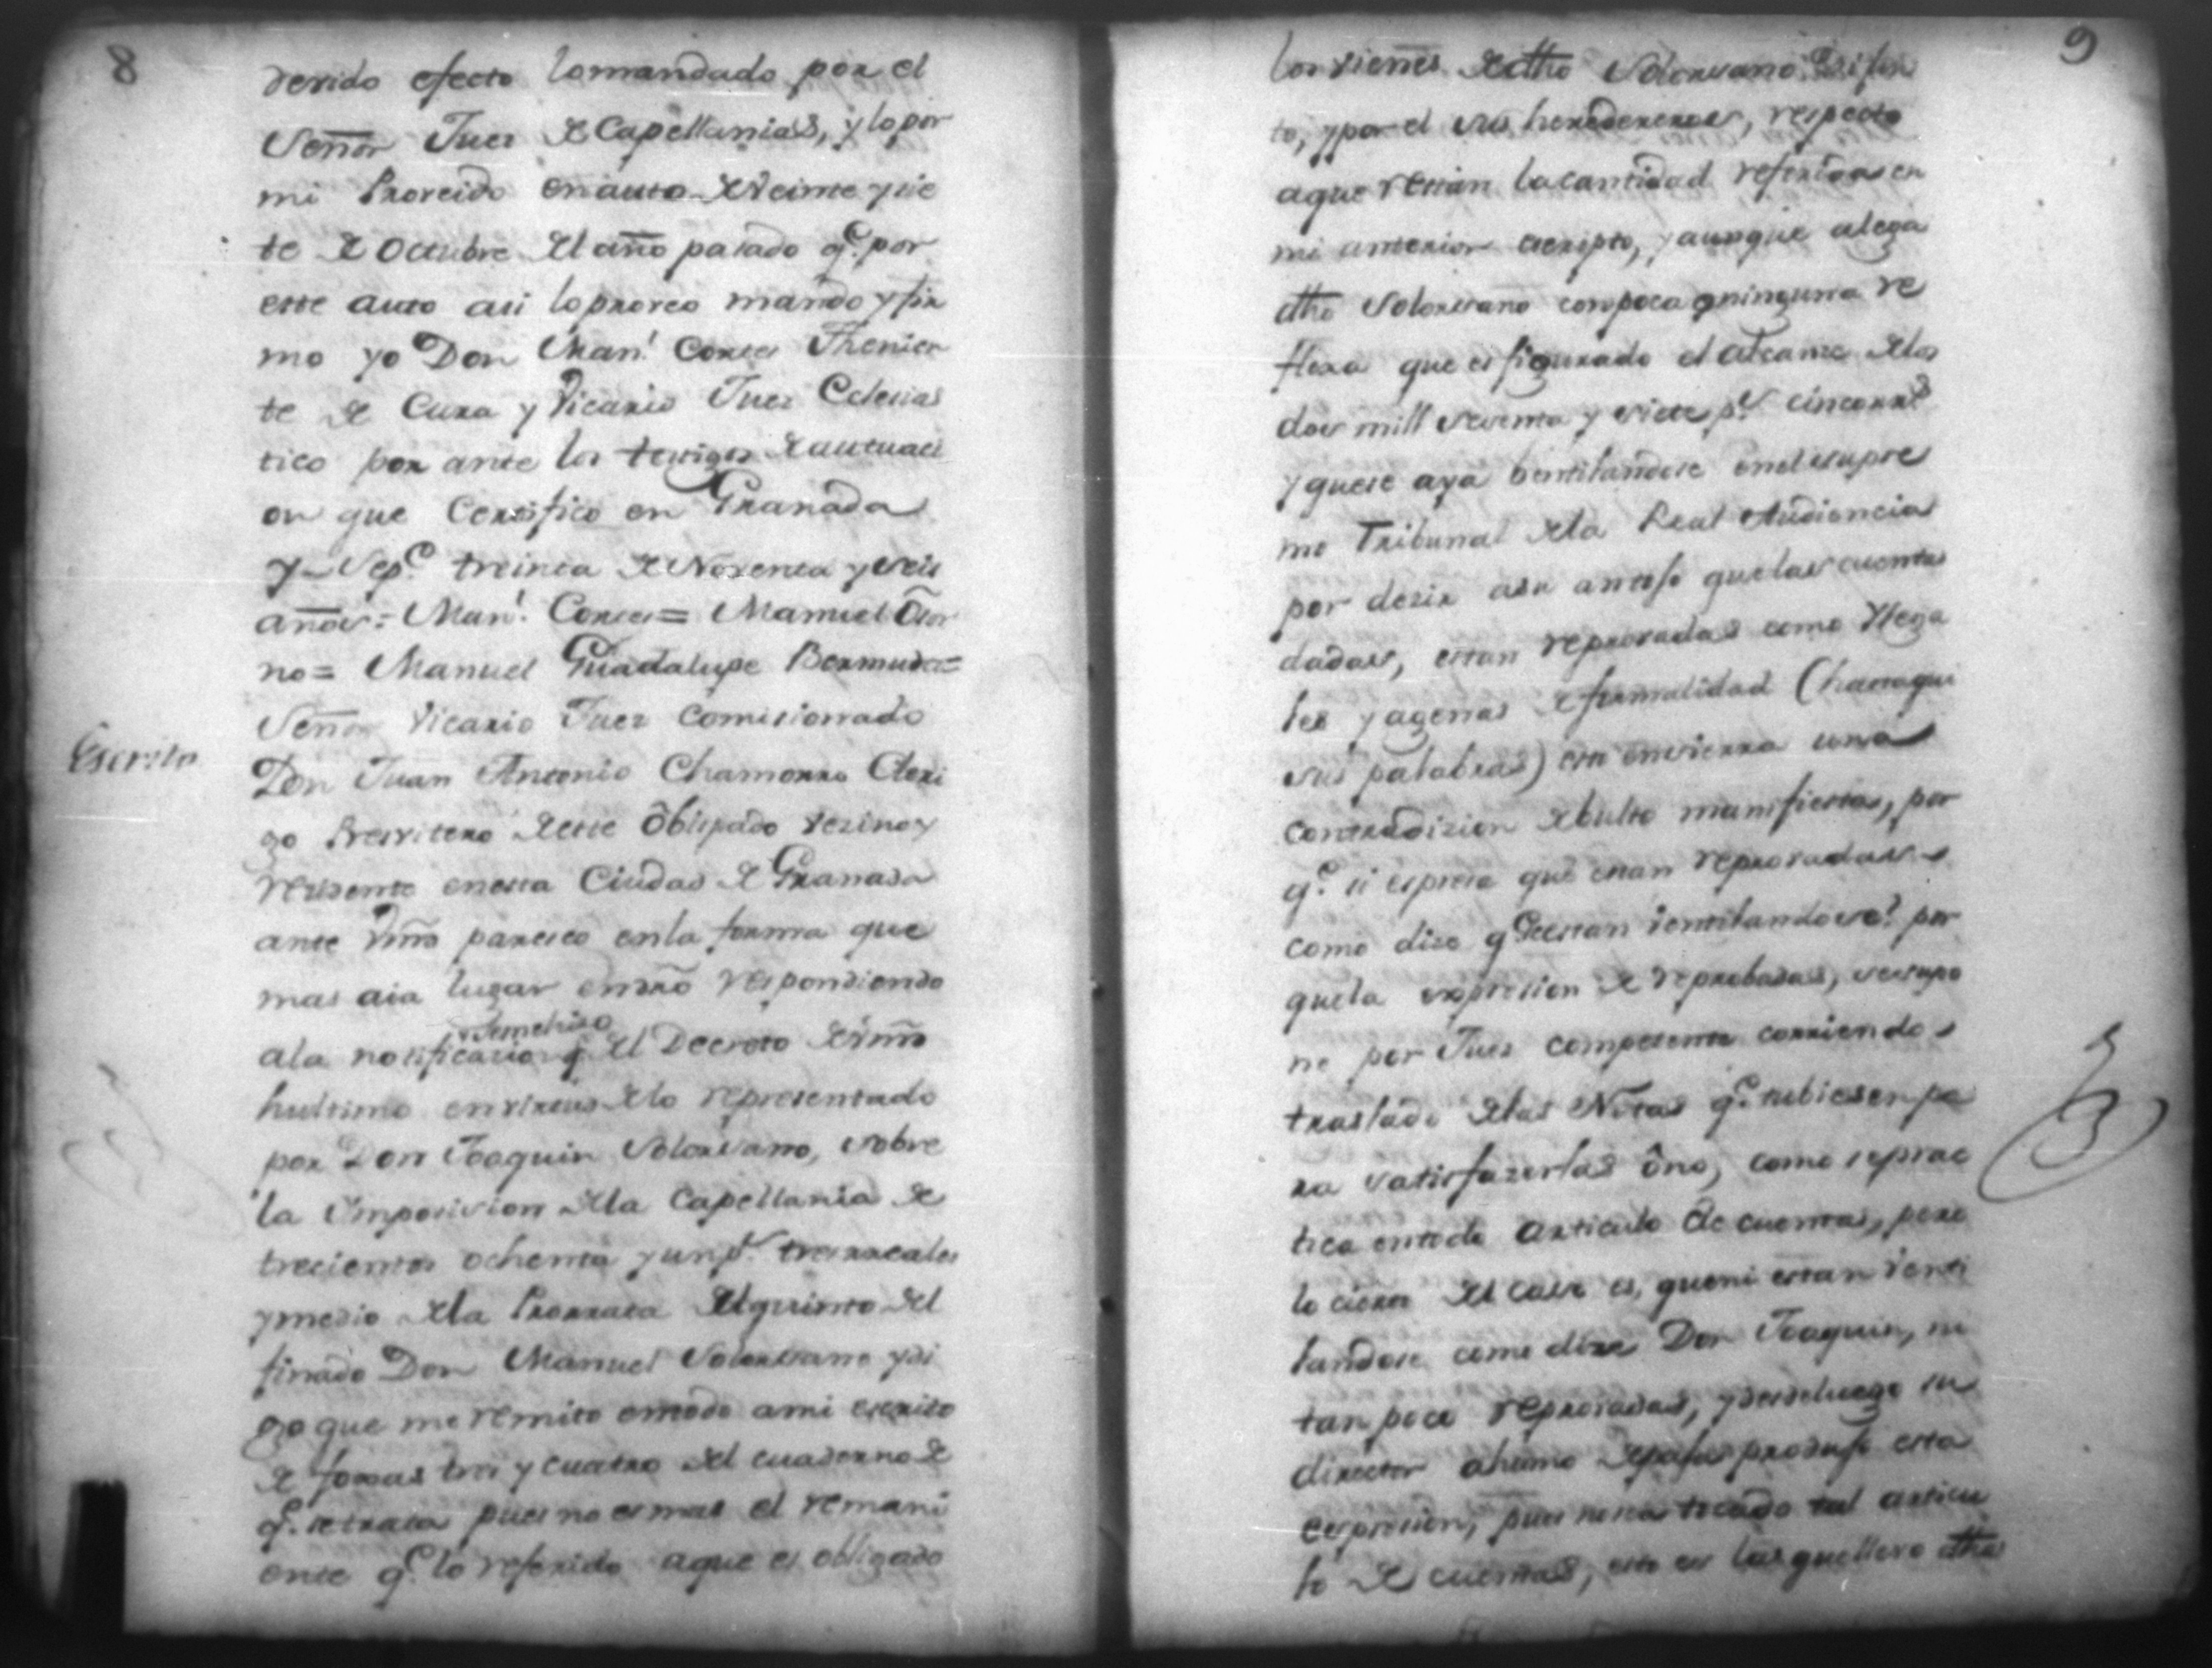 8
devido efecto lo mandado por el
Señor Juez de Capellanias, y lo por
mi Proveido en auto de veinte y sie
te de Octubre del año pasado q.e por
este auto asi lo proveo mando y fir
mo yo Don Man.l Cortes Thenien
te de Cura y Vicario Juez Eclesias
tico por ante los testigos de actuaci
on que Certifico en Granada
y Sep.e treinta de Noventa y seis
años = Man.l Cortes = Manuel Osor
no = Manuel Guadalupe Bermudes =
Señor Vicario Juez Comisionado
Escrito
Don Juan Antonio Chamorro Cleri
go Presvitero de este Obispado vezino y
residente en esta Ciudad de Granada
ante Vmd paresco en la forma que
mas aia lugar en dro respondiendo
se me hizo
a la notificazion q. del Decreto de Vmd
hultimo en virtud de lo representado
por Don Joaquin Solorsano, sobre
la Imposision de la Capellania de
trecientos ochenta y un p.s tres reales
y medio de la Prorrata del quinto del
finado Don Manuel Solorsano y di
go que me remito en todo a mi escrito
de foxas tres y cuatro del cuaderno de
q.e se trata pues no es mas el remani
ente q.e lo referido a que es obligado
9
los vienes de dho Solorsano Difun
to, y por el sus herederos, respecto
a que restan la cantidad referida en
mi anterior escripto, y aunque alega
dho Solorsano con poca o ninguna re
flexa que es figurado el alcanse de los
dos mill setenta y siete p.s cinco rr.s
y que se aya bentilandose en el supre
mo Tribunal de la Real Audiencia
por dezir a su antojo que las cuentas
dadas, estan reprovadas como Ylega
les y agenas de formalidad (hasta aqui
sus palabras) esto ensierra una
contradizion de bulto manifiesta, por
q.e si espresa que estan reprovadas
como dize q.e se estan ventilandose? por
que la expresion de reprobadas, se supo
ne por Juez competente corriendo
traslado de las Notas q.e tubiesen pa
ra satisfazerlas ô no, como se prac
tica en todo articulo de cuentas, pero
lo cierto del caso es, que ni estan venti
landose como dize Don Joaquin, ni
tan poco reprovadas, y desde luego su
director a humo de paja produjo esta
espresion, pues no se a tocado tal articu
lo de cuentas, esto es las que llevo dhas
3